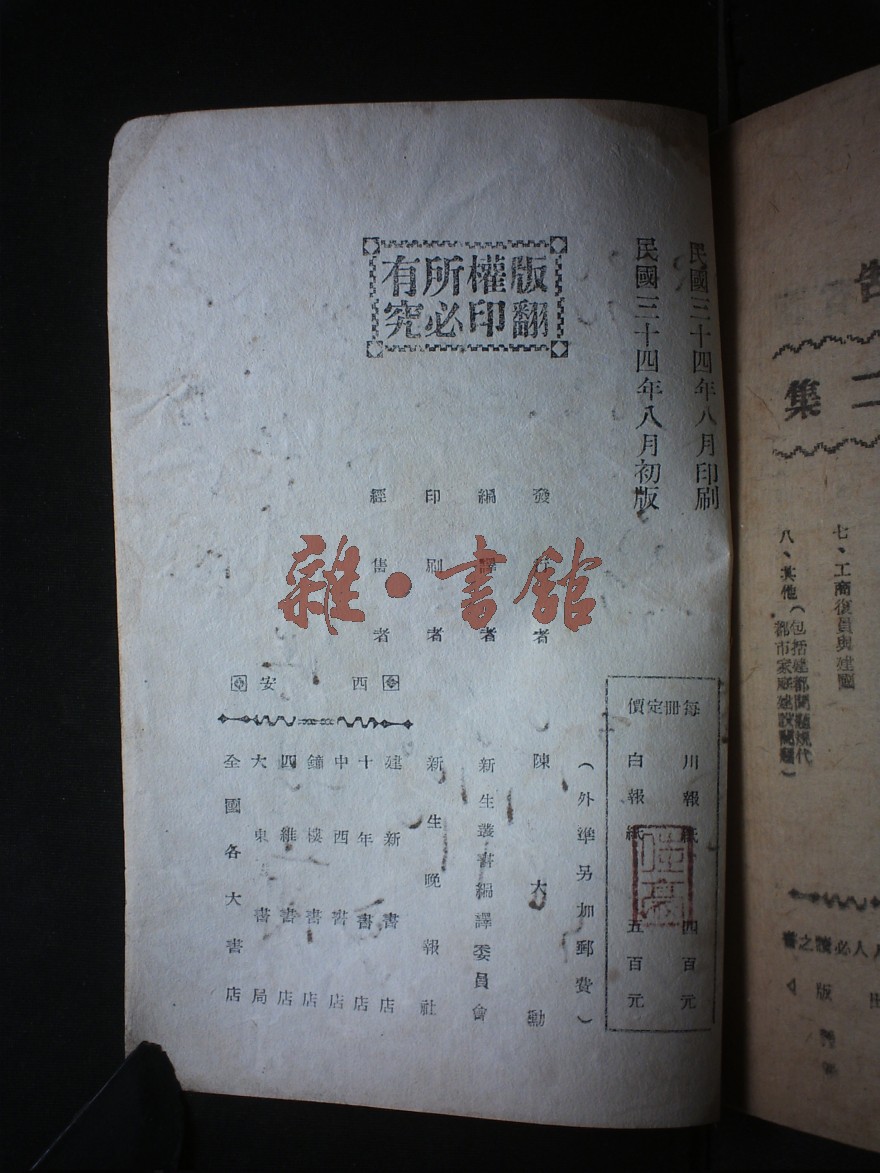 民國三十四年八月印刷
民國三十四年八月初版
版權所有
翻印必究
每冊定價
川報紙 四百元
白報紙 五百元
(外準另加郵費)
發行者 陳大勳
編譯者 新生叢書編譯委員會
印刷者 新生晚報社
經售者
西安
建新書店
十年書店
中西書店
鐘樓書店
四維書店
大東書局
全國各大書店
雜·書館
二集
七、工商復員與建國
八、其他(包括建都問題現代
都市家庭建設問題)
人人必讀之書